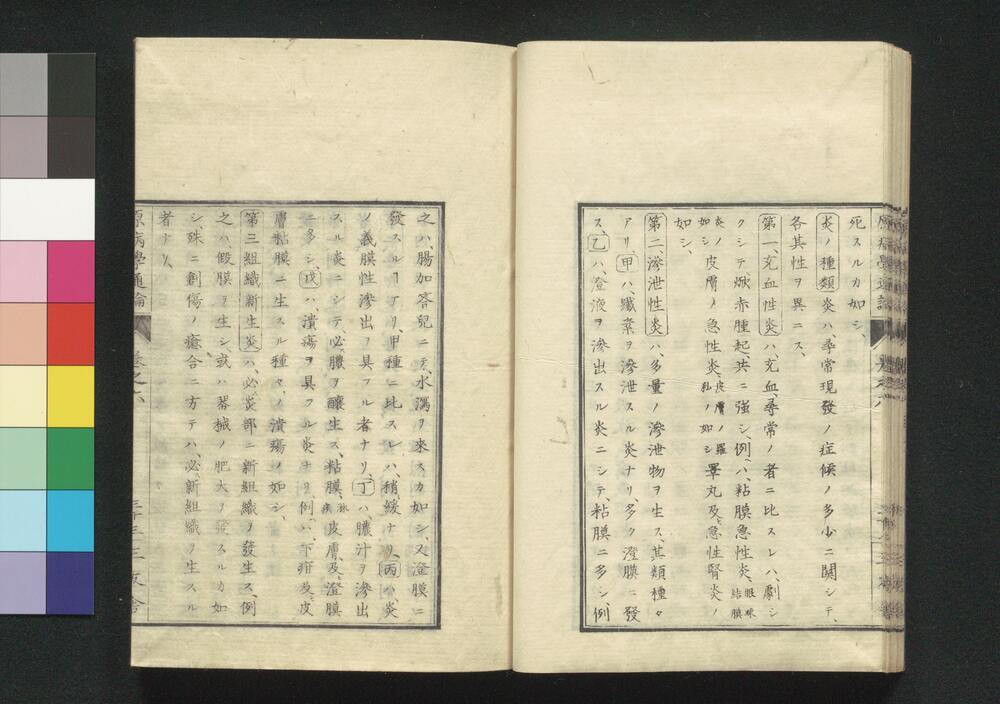 死スルカ如シ、
炎ノ種類炎ハ尋常現發ノ症候ノ多少ニ關シテ、
各其性ヲ異ニス、
第一、充血性炎ハ充血、尋常ノ者ニ比スレハ、劇シ
クシテ、焮赤腫起、共ニ強シ、例ハ、粘膜急性炎、眼球結膜
炎ノ如シ皮膚ノ急性炎、皮膚ノ羅私ノ如シ睪丸及、急性腎炎ノ
如シ、
第二滲泄性炎ハ、多量ノ滲泄物ヲ生ス、其類種々
アリ、甲ハ、纖素ヲ滲泄スル炎ナリ、多ク澄膜ニ發
ス、乙ハ、澄液ヲ滲出スル炎ニシテ、粘膜ニ多シ、例
之ハ、腸加答兒ニテ、水瀉ヲ來スカ如シ、又澄膜ニ
發スルヿアリ、甲種ニ比スレハ、稍緩ナリ、丙ハ、炎
ノ義膜性滲出ヲ具フル者ナリ、丁ハ、膿汁ヲ滲出
スル炎ニシテ、必、膿ヲ醸生ス、粘膜、皮膚及、澄膜
ニ多シ、戊ハ、潰瘍ヲ具フル炎ナリ、例ハ、下疳及、皮
膚粘膜ニ生スル種々ノ潰瘍ノ如シ、
第三組織新生炎ハ、必、炎部ニ新組織ヲ發生ス、例
之ハ、假膜ヲ生シ、或ハ器械ノ肥大ヲ發スルカ如
シ、殊ニ創傷ノ癒合ニ方テハ、必、新組織ヲ生スル
者ナリ、
原病學通論